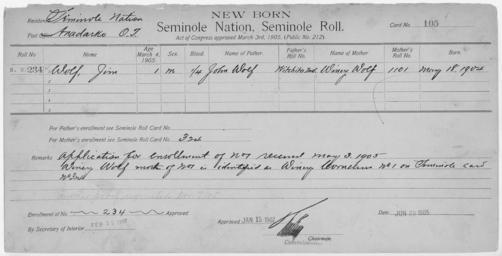 NEW BORN
Seminole Nation, Seminole Roll.
Act of Congress approved March 3rd, 1905. (Public No. 212).
Residence Seminole Nation
Post Office Anadarko O.T.
Card No. 105
Roll No
Name
Age March 4, 1905
Sex
Blood
Name of Father.
Father's Roll No.
Name of Mother
Mother's Roll No.
Born.
N. B. 234 Wolf, Jim 1 m 1/4 John Wolf Wichita Ind. Winey Wolf 1101 May 18, 1904
2
3
4
5
For Father's enrollment see Seminole Roll Card No.
For Mother's enrollment see Seminole Roll Card No.
Remarks Application for enrollment of No 1 received May 2, 1905
Winey Wolf mother of No 1 is identified as Winey Cornelius No 1 on Seminole card
Enrollment of No 234 Approved
By Secretary of Interior
Approved JAN 15 1907
Chairman
Commissioner.
Date JUN 1905